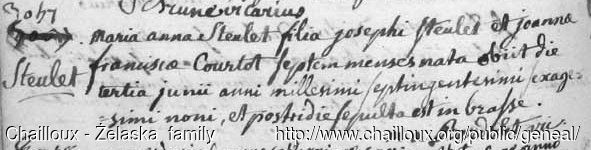 3047
maria anna Steulet filia josephi Steulet et joannæ
Steulet
franciscæ Courtot septem menses nata obiit die
tertia junii anni millesimi septingentesimi sexage-
simi noni, et postridie sepulta est in
Chailloux - Żelaska family http://www.chailloux.org/public/geneal/